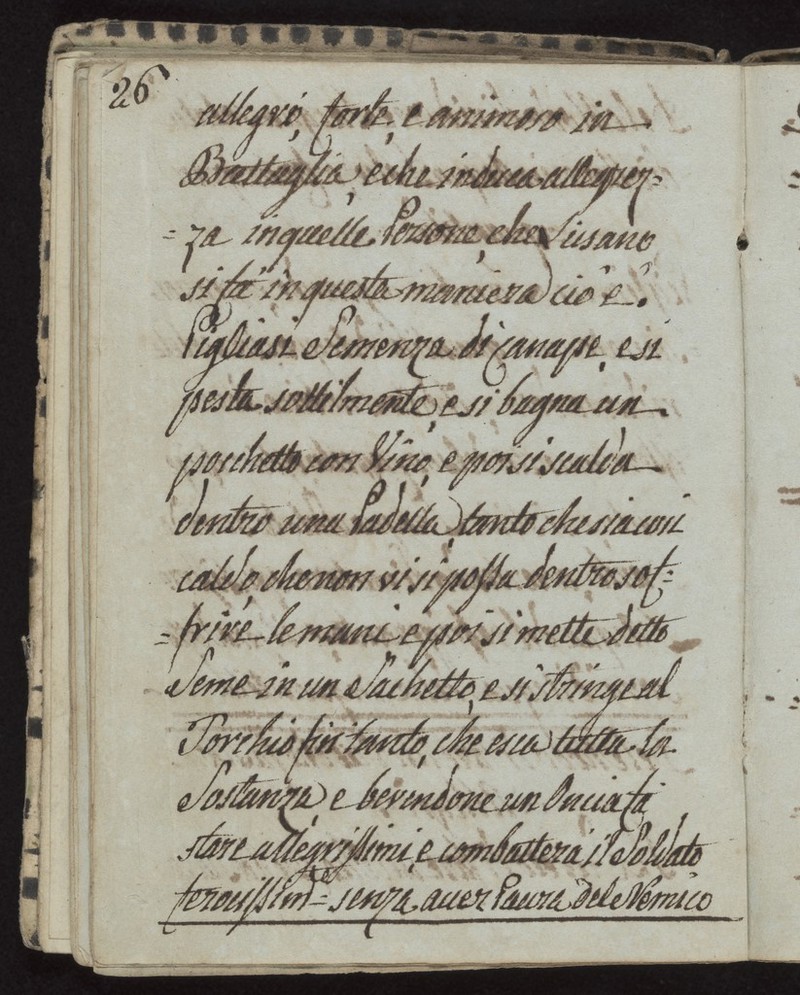 26
allegro, forte, e animoso in
Battaglia, e che induca allegrez=
=za in quelle Persone, che L'usano
si fà in questa maniera cio è.
Pigliasi Semenza di Canape, e si
pesta sottilmente, e si bagna un
pocchetto con Vino, e poi si scalda
dentro una Padella, tanto che sia così
caldo, che non vi si possa dentro sof=
=frire le mani e poi si mette detto
Seme in un Sachetto, e si stringe al
Torchio fin tanto, che esca tutta la
Sostanza, e bevendone un Oncia fà
stare allegrissimi, e combatterà il Soldato
ferocissim.te= senza aver Paura del Nemico